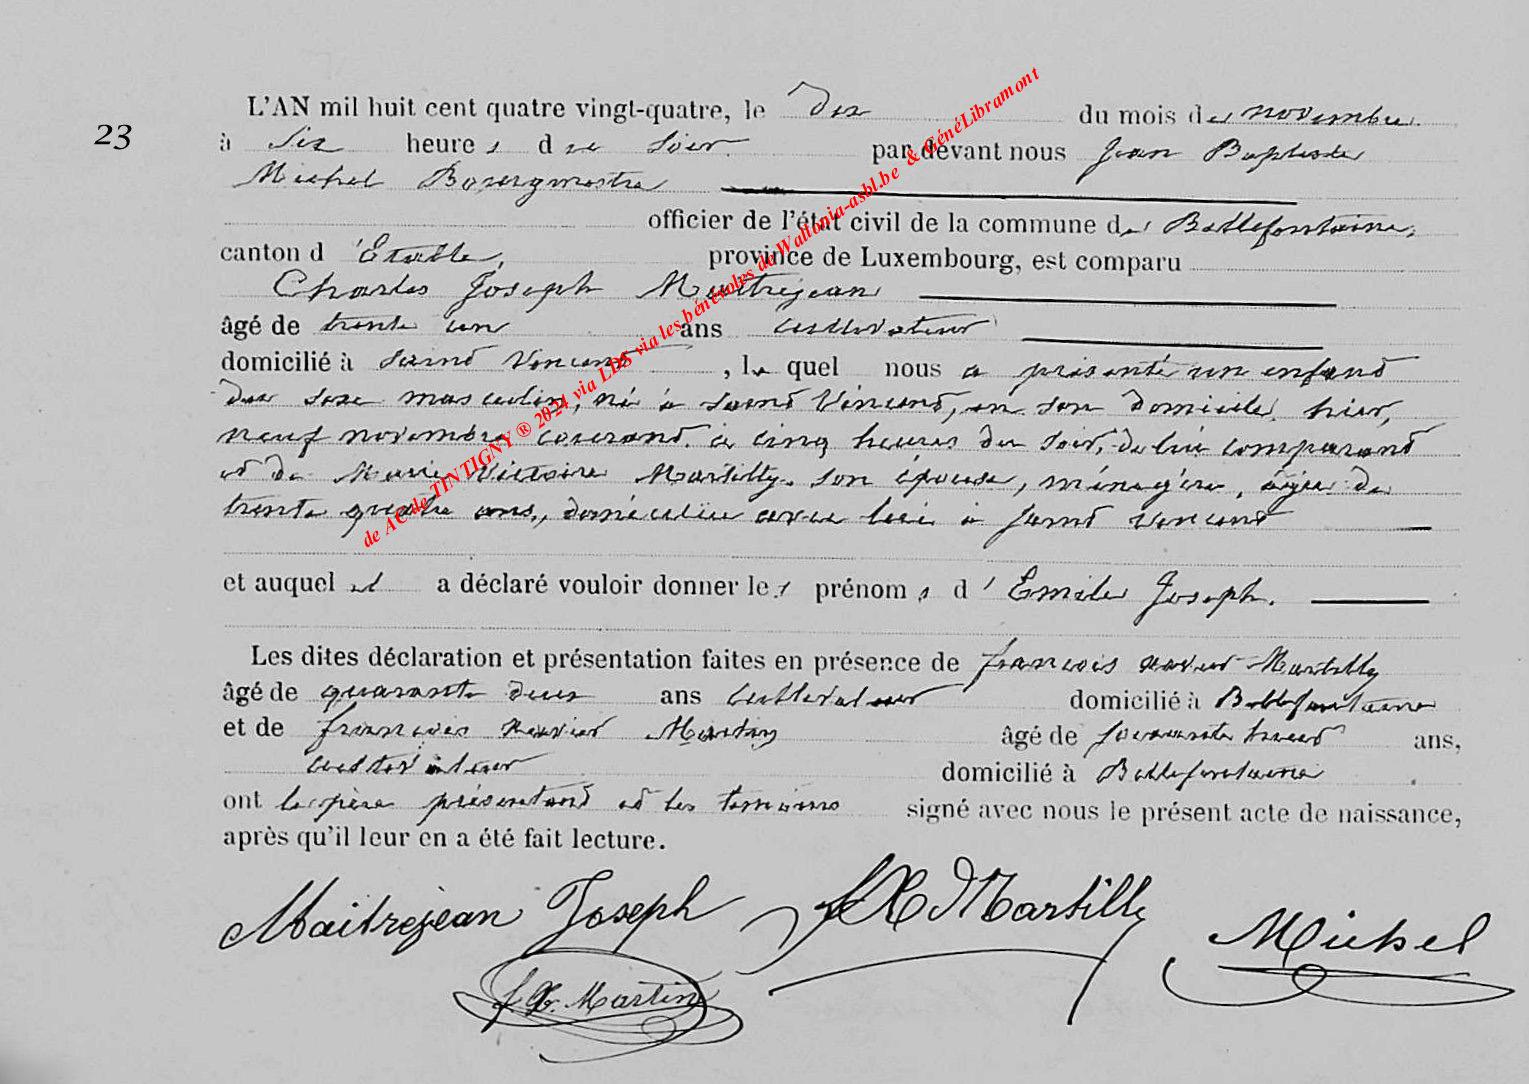 23
L'AN mil huit cent quatre vingt-quatre, le dix du mois de novembre
à six heures du soir par devant nous Jean Baptiste
Michel Bourgmestre
officier de l'état civil de la commune de Bellefontaine,
canton d'Etalle, province de Luxembourg, est comparu
Charles Joseph Maitrejean
âgé de trente un ans cultivateur
domicilié à Saint Vincent, le quel nous a présenté un enfant
du sexe masculin, né à Saint Vincent, en son domicile, hier,
neuf novembre courant à cinq heures du soir, de lui comparant
et de Marie Victoire Martilly, son épouse, ménagère, âgée de
trente quatre ans, domiciliée avec lui à Saint Vincent
et auquel il a déclaré vouloir donner les prénoms d'Emile Joseph.
Les dites déclaration et présentation faites en présence de françois xavier Martilly
âgé de quarante deux ans cultivateur domicilié à Bellefontaine
et de françois xavier Martin âgé de soixante huit ans,
cultivateur domicilié à Bellefontaine
ont le père présentant et les témoins signé avec nous le présent acte de naissance,
après qu'il leur en a été fait lecture.
Maitrejean Joseph fX Martilly Michel
f X. Martin
de AC de TINTIGNY ® 2024 via LDS via les bénévoles de Wallonia-asbl.be & GénéLibramont